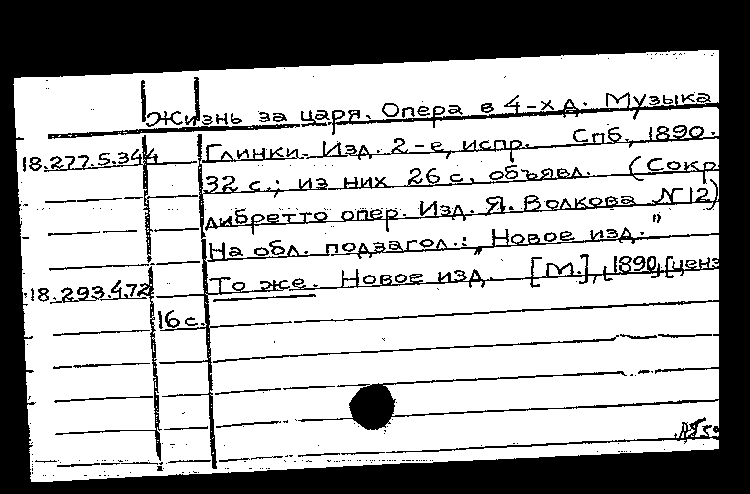 Жизнь за царя. Опера в 4-х д. Музыка
18.277.5.344 Глинки. Изд. 2-е, испр. Спб., 1890.
32 с.; из них 26 с. объявл. (Сокр.
либретто опер. Изд. Я. Волкова N 12)
На обл. подзагол.: „Новое изд."
18.293.4.72 То же. Новое изд. [М.], [1890, [ценз
16 с.